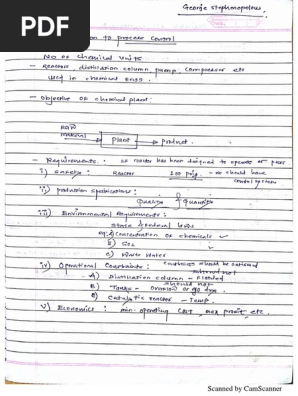 George stephanopoulos.
PDF
tion to process control
No of chemical units
- Reactors distillation column, pump, compressor etc
used in chemical engg.
- Objective of chemical plant:
RAW
material
Plant
product.
- Requirements: If reactor has been designed to operate at press
i) Safety: Reactor 100 psig. should have
control system
ii) production specifications:
Quality & Quantity
iii) Environmental Requirements:
state & federal laws
eg. a) Concentration of chemicals
b) SO2
c) Waste water
iv) Operational Constraints: Constraints should be satisfied
should not
A) Distillation column - flooded
should not
B) Tanks - overflow or go dry.
C) Catalytic reactor - Temp.
v) Economics: min. operating cost, max profit, etc.
Scanned by CamScanner